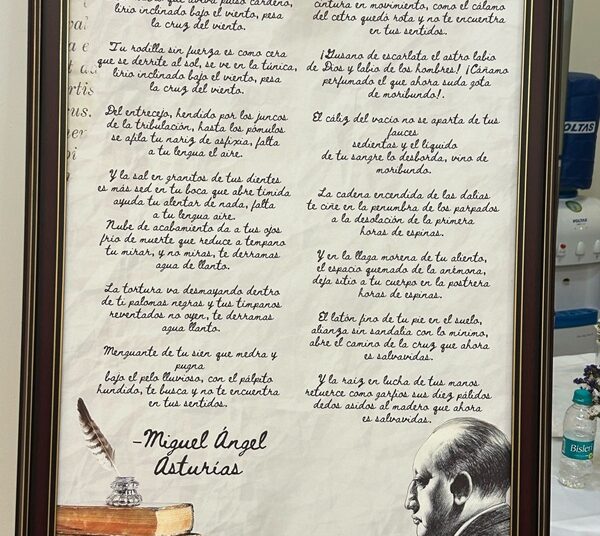 lirio inclinado bajo el viento, pesa
la cruz del viento.
Tu rodilla sin fuerza es como cera
que se derrite al sol, se ve en la túnica,
lirio inclinado bajo el viento, pesa
la cruz del viento.
Del entrecejo, hendido por los juncos
de la tribulación, hasta los pómulos
se afila tu nariz de asfixia, falta
a tu lengua el aire.
Y la sal en granitos de tus dientes
es más sed en tu boca que abre tímida
ayuda tu alentar de nada, falta
a tu lengua aire.
Nube de acabamiento da a tus ojos
frío de muerte que reduce a témpano
tu mirar, y no miras, te derramas
agua de llanto.
La tortura va desmayando dentro
de ti palomas negras y tus tímpanos
reventados no oyen, te derramas
agua llanto.
Menguante de tu sien que medra y
pugna
bajo el pelo lluvioso, con el pálpito
hundido, te busca y no te encuentra
en tus sentidos.
cintura en movimiento, como el cálamo
del cetro quedó rota y no te encuentra
en tus sentidos.
¡Gusano de escarlata el astro labio
de Dios y labio de los hombres! ¡Cáñamo
perfumado el que ahora suda gota
de moribundo!.
El cáliz del vacío no se aparta de tus
fauces
sedientas y el líquido
de tu sangre la desborda, vino de
moribundo.
La cadena encendida de las dalias
te ciñe en la penumbra de los párpados
a la desolación de la primera
horas de espinas.
Y en la llaga morena de tu aliento,
el espacio quemado de la anémona,
deja sitio a tu cuerpo en la postrera
horas de espinas.
El latón fino de tu pie en el suelo,
alianza sin sandalia con lo mínimo,
abre el camino de la cruz que ahora
es salvavidas.
Y la raíz en lucha de tus manos
retuerce como garfios sus diez pálidos
dedos asidos al madero que ahora
es salvavidas.
-Miguel Ángel
Asturias
VOLTAS
VOLTAS
Bisleri